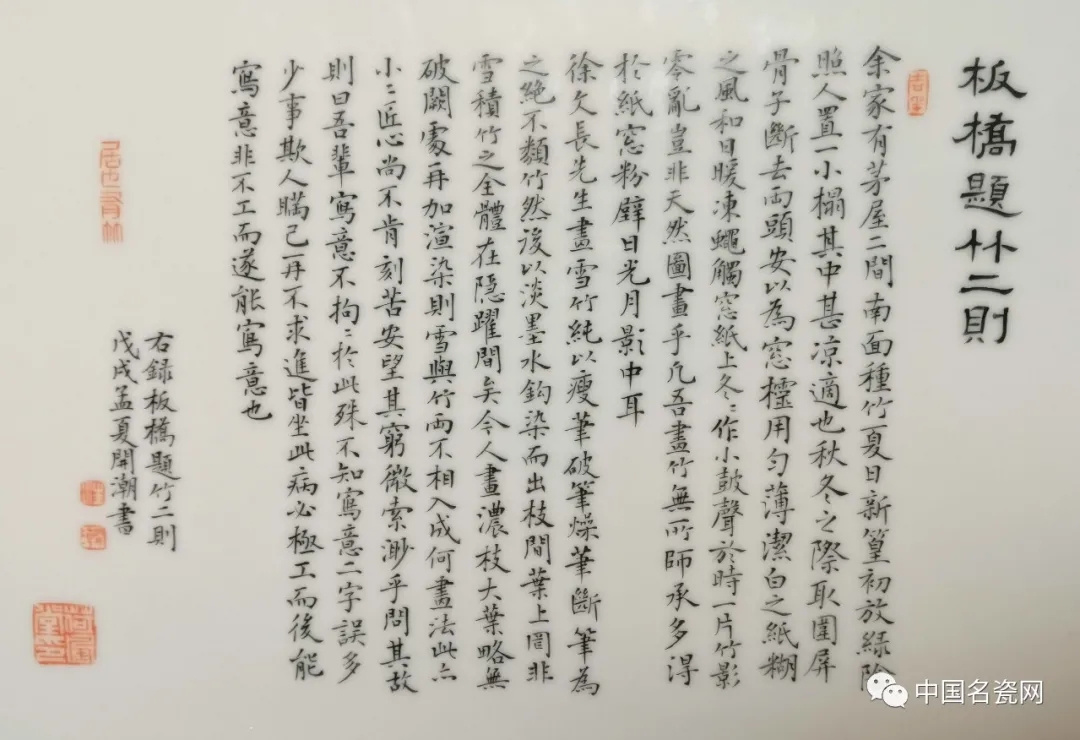 板橋題竹二則
余家有茅屋二間南面種竹夏日新篁初放緑陰
照人置一小榻其中甚凉適也秋冬之際取圍屏
骨子斷去兩頭安以為窓欞用勻薄潔白之紙糊
之風和日暖凍蠅觸窓紙上冬〻作小鼓聲於時一片竹影
零亂豈非天然圖畫乎凡吾畫竹無所師承多得
於紙窓粉壁日光月影中耳
徐文長先生畫雪竹純以瘦筆破筆燥筆斷筆為
之絶不類竹然後以淡墨水鈎染而出枝間葉上罔非
雪積竹之全體在隱躍間矣今人畫濃枝大葉略無
破闕處再加渲染則雪與竹兩不相入成何畫法此亦
小〻匠心尚不肯刻苦安望其窮微索渺乎問其故
則曰吾輩寫意不拘〻於此殊不知寫意二字誤多
少事欺人瞞己再不求進皆坐此病必極工而後能
寫意非不工而遂能寫意也
右録板橋題竹二則
戊戌孟夏開潮書
中国名瓷网